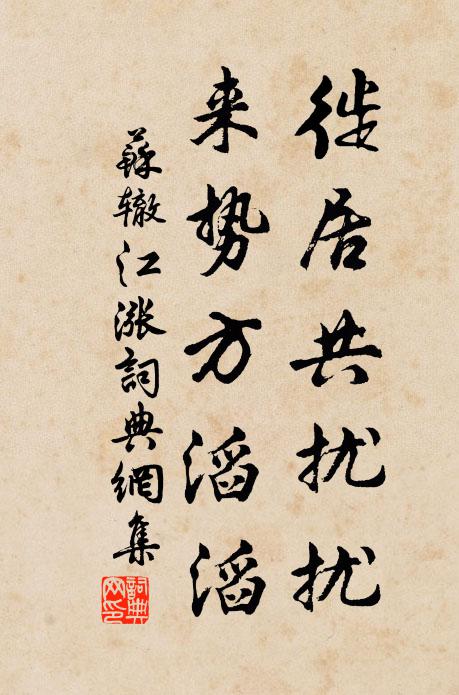 徙居共扰扰
来势方滔滔
蘇辙江涨詞典網集
詞典網印